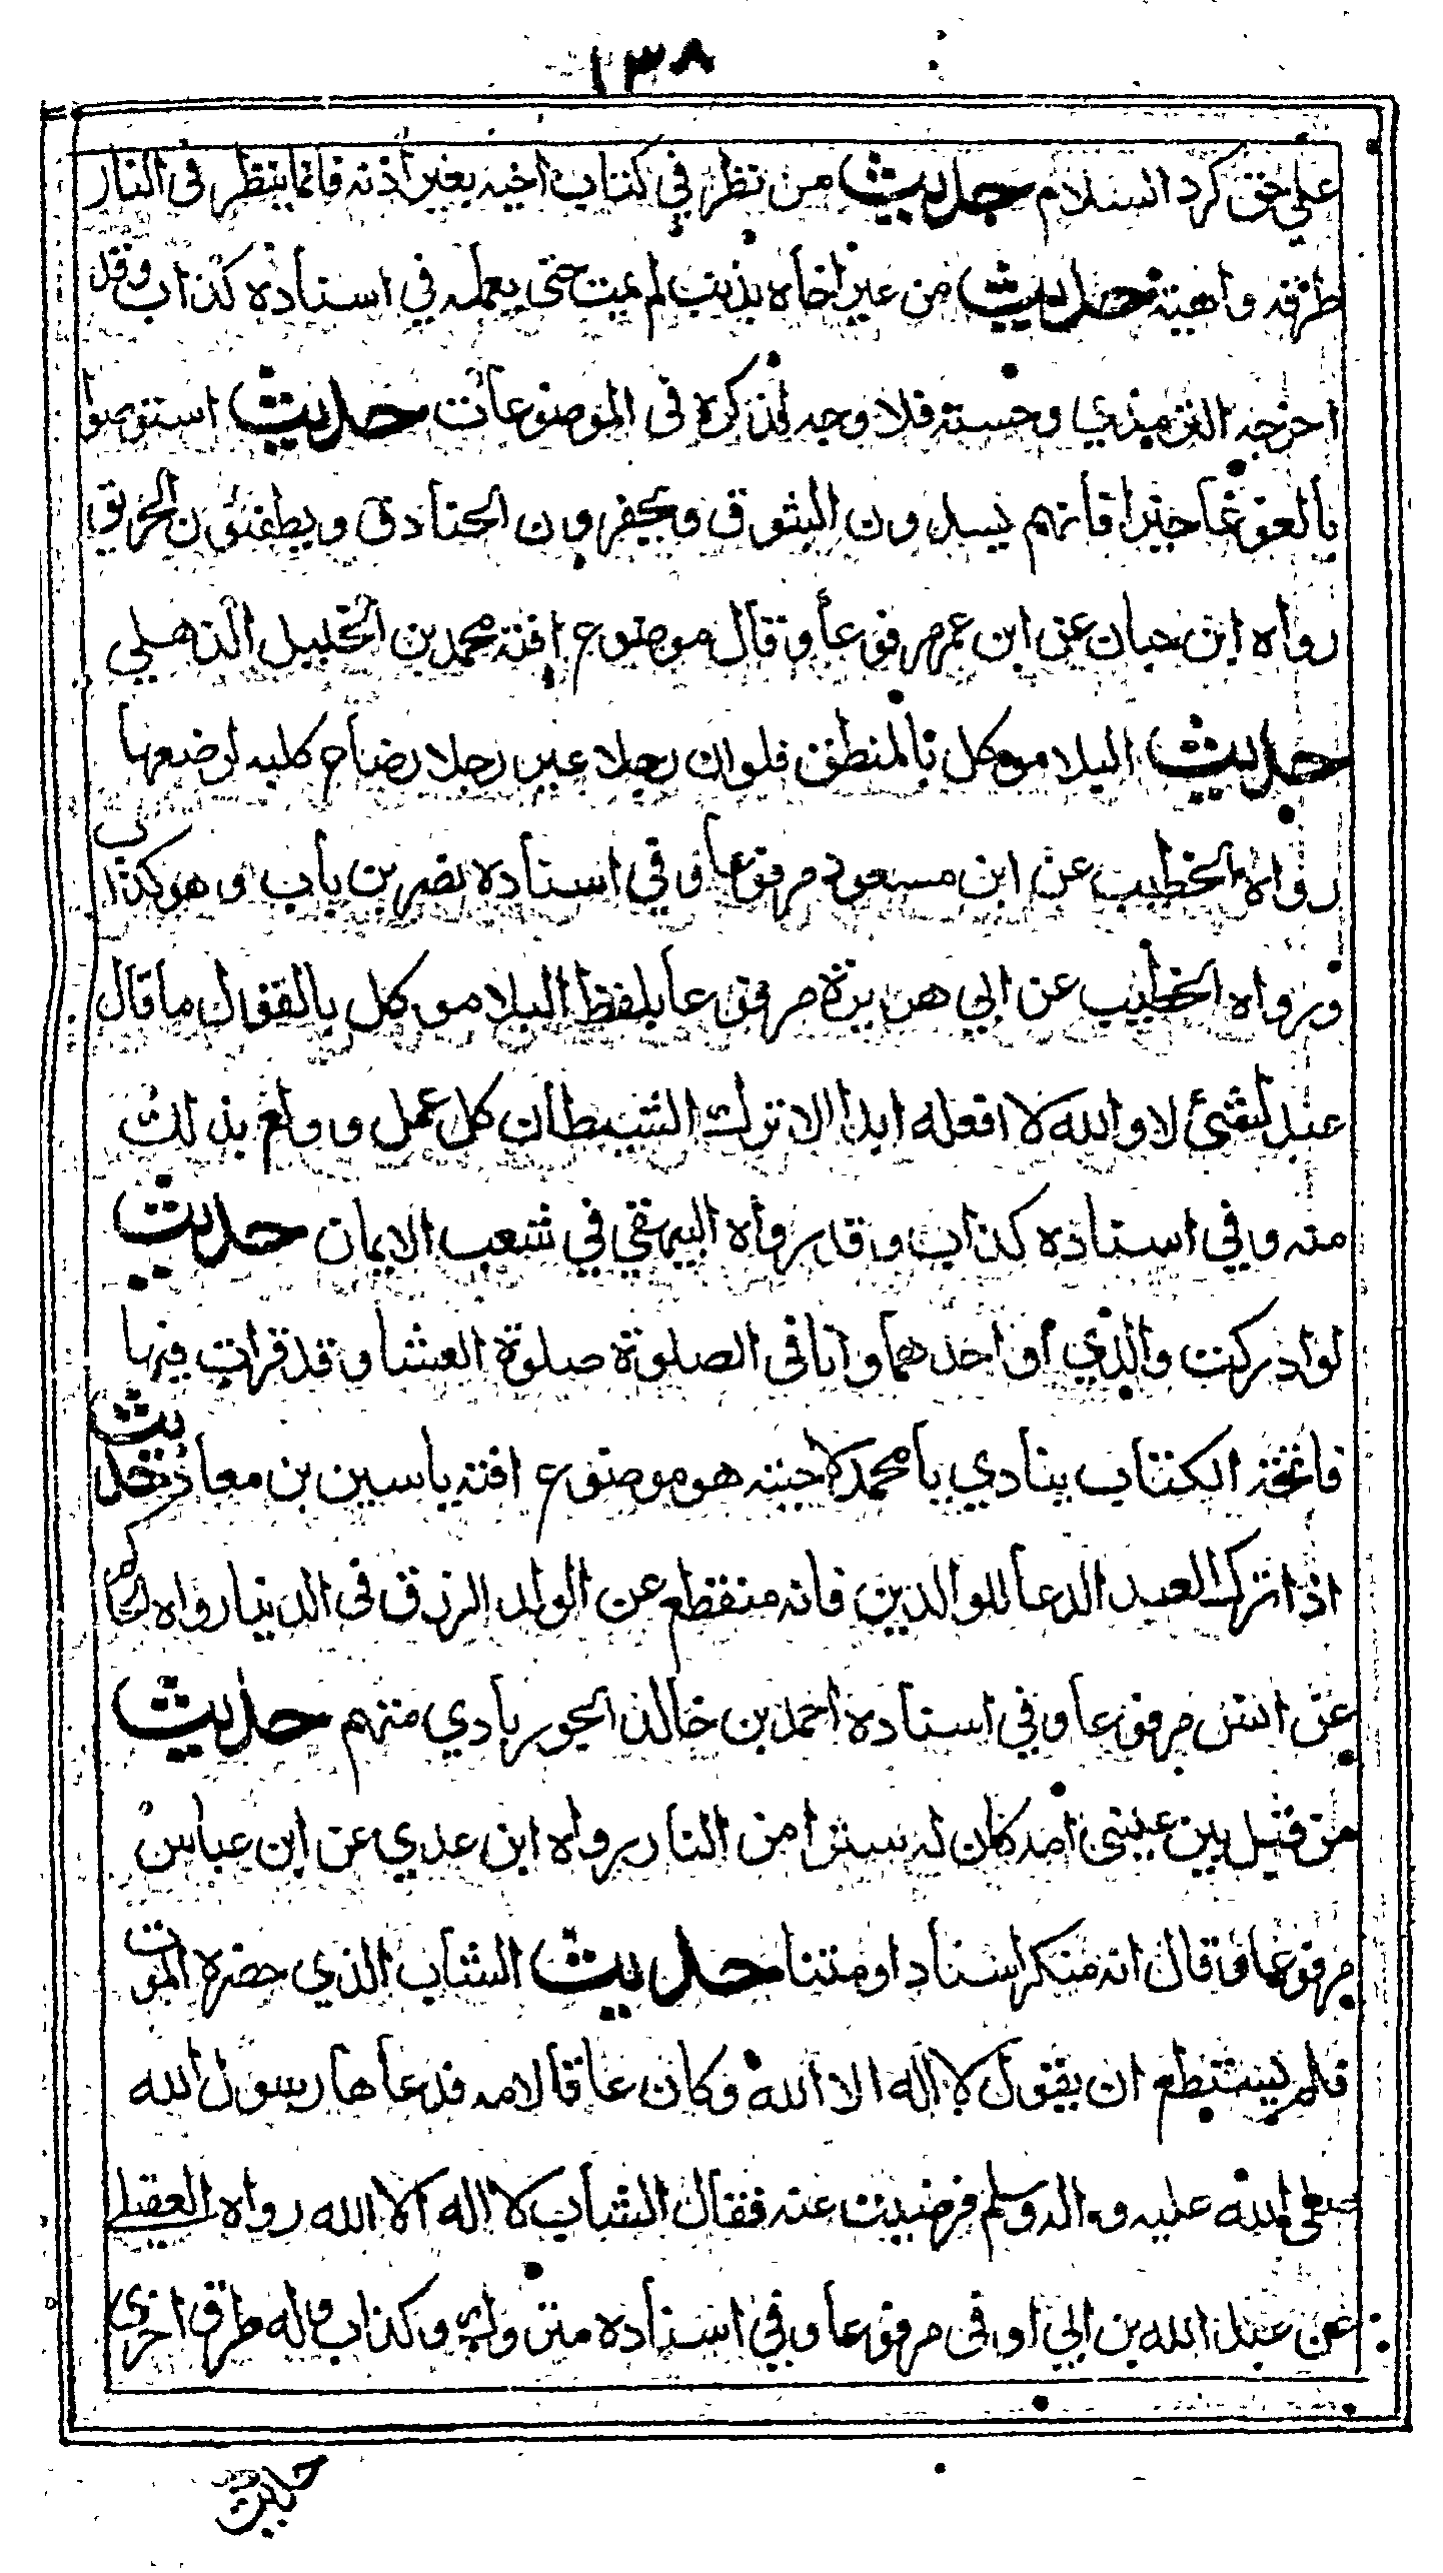 ١٣٨
علي حق كرد السلام حديث من نظر في كتاب اخيه بغير اذنه فانما ينظر في النار
طرقه واهية حديث من عير اخاه بذنب لم يمت حتى يعمله في اسناده كذاب وقد
اخرجه الترمذي وحسنه فلا وجه لذكره في الموضوعات حديث استوصوا
بالغوغا خيرا فانهم يسدون البثوق ويحفرون الخنادق ويطفئون الحريق
رواه ابن حبان عن ابن عمر مرفوعا وقال موضوع افته محمد بن الخليل الذهلي
حديث البلا موكل بالمنطق فلو ان رجلا عير رجلا رضاع كلبه لرضعها
رواه الخطيب عن ابن مسعود مرفوعا وفي اسناده نصر بن باب وهو كذاب
ورواه الخطيب عن ابي هريرة مرفوعا بلفظ البلا موكل بالقول ما قال
عبد لشئ لا والله لا افعله ابدا الا ترك الشيطان كل عمل وولع بذلك
منه وفي اسناده كذاب وقد رواه البيهقي في شعب الايمان حديث
لو ادركت والدي او احدهما وانا في الصلوة صلوة العشا وقد قرات فيها
فاتحة الكتاب ينادي يا محمد لاجبته هو موضوع افته ياسين بن معاذ حديث
اذا ترك العبد الدعا للوالدين فانه منقطع عن الولد الرزق في الدنيا رواه الحاكم
عن انس مرفوعا وفي اسناده احمد بن خالد الجويباردي متهم حديث
من قبل بين عيني امه كان له سترا من النار رواه ابن عدي عن ابن عباس
مرفوعا وقال انه منكر اسنادا ومتنا حديث الشاب الذي حضره الموت
فلم يستطع ان يقول لا اله الا الله وكان عاقا لامه فدعاها رسول الله
صلى الله عليه واله وسلم فرضيت عنه فقال الشاب لا اله الا الله رواه العقيلي
عن عبد الله بن ابي اوفى مرفوعا وفي اسناده متروك وكذاب وله طرق اخرى
حديث